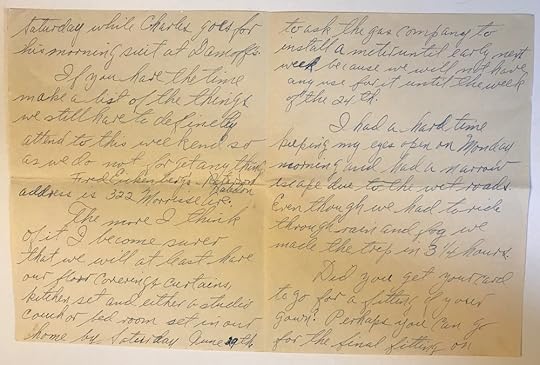 to ask the gas company to
install a meter until early next
week because we will not have
any use for it until the week
of the 24th.
I had a hard time
keeping my eyes open on Monday
morning and had a narrow
escape due to the wet roads.
Even though we had to ride
through rain and fog we
made the trip in 3 1/4 hours.
Did you get your card
to go for a fitting of your
gown? Perhaps you can go
for the final fitting on
Saturday while Charles goes for
his morning suit at
If you have the time
make a list of the things
we still have to definetly
attend to this weekend so
as we do not forget any thing
Fred
address is 322 Ave.
The more I think
of it I become surer
that we will at least have
our floor coverings, curtains,
kitchen set and either a studio
couch or bed room set in our
home by Saturday June 29th.